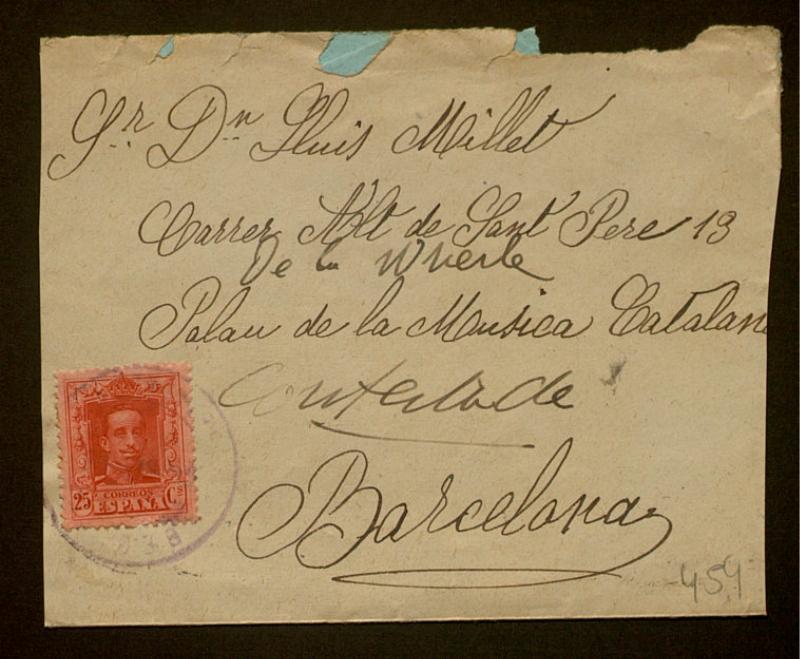 Sr. Dn. Lluis Millet
Carrer Alt de Sant Pere 13
De la
Palau de la Musica Catalan
Barcelona
25 CORREOS Cs
ESPAÑA
459